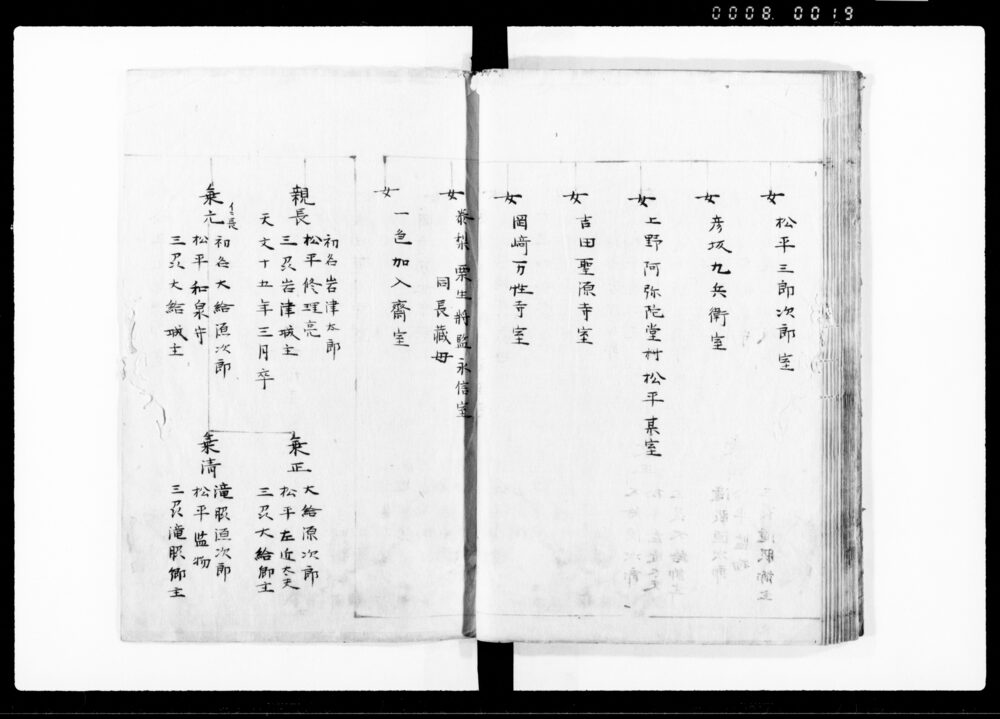 0008 0019
女
松平三郎次郎室
女
彦坂九兵衛室
女
上野阿弥陀堂村松平某室
女
吉田聖源寺室
女
岡﨑万性寺室
女
栗生将監永信室
同長蔵母
女
一色加入齋室
親長
初名岩津太郎
松平修理亮
三刕岩津城主
天文十五年三月卒
乗元
初名大給源次郎
松平和泉守
三刕大給城主
乗正
大給源次郎
松平左近太夫
三刕大給郷主
乗清
滝脇源次郎
松平監物
三刕滝脇郷主